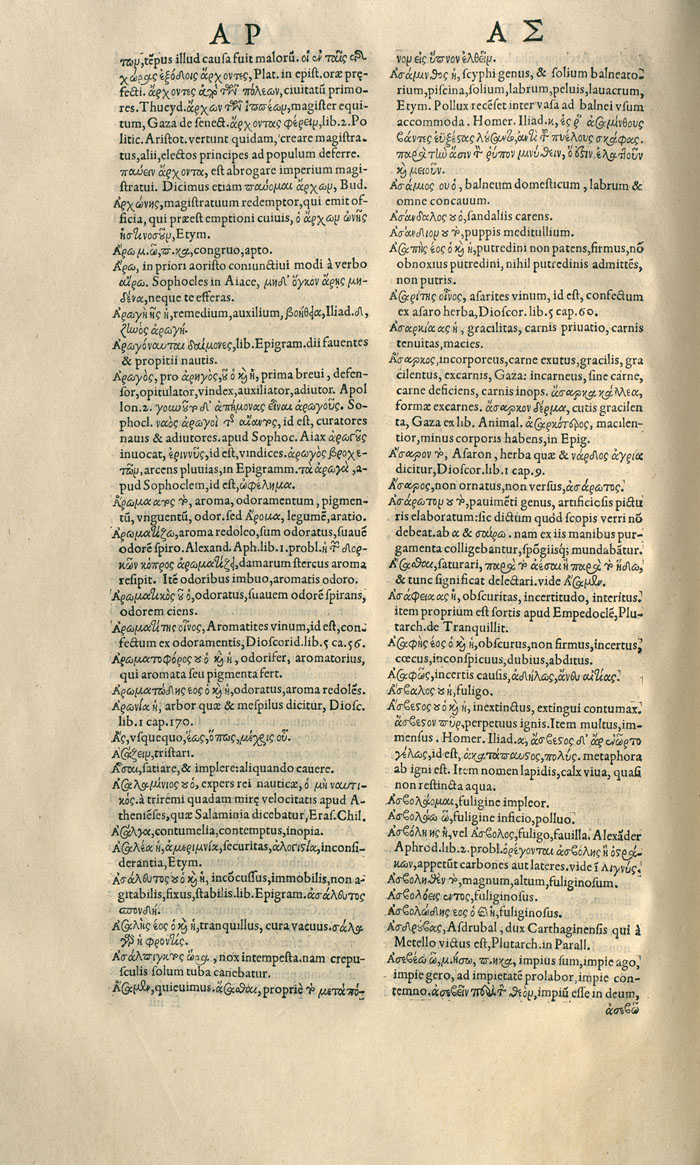 ΑΡ
των, tẽpus illud causa fuit malorũ. οἱ ἐν ταῖς
χώρας ἄρχοντες, Plat. in epist. oræ prę-
fecti. ἄρχοντες πόλεων, ciuitatũ primo-
res. Thucyd. ἄρχων ἱππέων, magister equi-
tum, Gaza de senect. ἄρχοντας φέρειν, lib. 2. Po
litic. Aristot. vertunt quidam, creare magistra-
tus, alii, electos principes ad populum deferre.
παύειν ἄρχοντα, est abrogare imperium magi-
stratui. Dicimus etiam παύομαι ἄρχων, Bud.
Αρχώνης, magistratuum redemptor, qui emit of-
ficia, qui præest emptioni cuiuis, ὁ ἄρχων ὠνῆς
ἡστινοσοῦν, Etym.
Αρω μ. ῶ, π. κα, congruo, apto.
Αρω, in priori aoristo coniunctiui modi à verbo
αἴρω. Sophocles in Aiace, μηδ' ὄγκον ἄρῃς μη-
δένα, neque te efferas.
Αρωγὴ ῆς ἡ, remedium, auxilium, βοήθεια, Iliad. δ,
ζηνὸς ἀρωγή.
Αρωγόναυται δαίμονες, lib. Epigram. dii fauentes
& propitii nautis.
Αρωγὸς, pro ἀρηγὸς, οῦ ὁ καὶ ἡ, prima breui, defen-
sor, opitulator, vindex, auxiliator, adiutor. Apol
lon. 2. ἀπήμονας εἶναι ἀρωγούς. So-
phocl. ναὸς ἀρωγοὶ id est, curatores
nauis & adiutores. apud Sophoc. Aiax ἀρωγοὺς
inuocat, ἐριννῦς, id est, vindices. ἀρωγὸς βροχε-
τῶν, arcens pluuias, in Epigramm. τὰ ἀρωγὰ, a-
pud Sophoclem, id est, ὠφέλημα.
Αρωμα ατος τὸ, aroma, odoramentum, pigmen-
tũ, vnguentũ, odor. sed Αρομα, legumẽ, aratio.
Αρωματίζω, aroma redoleo, sum odoratus, suauẽ
odorẽ spiro. Alexand. Aph. lib. 1. probl. ἡ δορ-
κῶν κόπρος ἀρωματίζει, damarum stercus aroma
resipit. Itẽ odoribus imbuo, aromatis odoro.
Αρωματικὸς οῦ ὁ, odoratus, suauem odorẽ spirans,
odorem ciens.
Αρωματίτης οἶνος, Aromatites vinum, id est, con-
fectum ex odoramentis, Dioscorid. lib. 5 ca. 56.
Αρωματοφόρος ου ὁ καὶ ἡ, odorifer, aromatorius,
qui aromata seu pigmenta fert.
Αρωματώδης εος ὁ καὶ ἡ, odoratus, aroma redolẽs.
Αρωνία ἡ, arbor quæ & mespilus dicitur, Diosc.
lib. 1 cap. 170.
Ας, vsquequo, ἕως, ὅπως, μέχρις οὗ.
Ασάζειν, tristari.
Ασαι, satiare, & implere: aliquando cauere.
Ασαλαμίνιος ου ὁ, expers rei nauticæ, ὁ μὴ ναυτι-
κός. à triremi quadam mirę velocitatis apud A-
theniẽses, quæ Salàminia dicebatur, Eras. Chil.
Ασάλγα, contumelia, contemptus, inopia.
Ασαλέα ἡ, ἀμεριμνία, securitas, ἀλογιστία, inconsi-
derantia, Etym.
Ασάλευτος ου ὁ καὶ ἡ, incõcussus, immobilis, non a-
gitabilis, fixus, stabilis. lib. Epigram. ἀσάλευτος
σπονδή.
Ασαλὴς έος ὁ καὶ ἡ, tranquillus, cura vacuus. σάλα
γὰρ ἡ φροντίς.
Ασάλπιγκτος ὥρα, nox intempesta. nam crepu-
sculis solum tuba canebatur.
Ασαμεν, quieuimus. ἄσασθαι, propriè τὸ μεταπο-
ΑΣ
νομ εἰς ὕπνον ἐλθεῖν.
Ασάμινθος ἡ, scyphi genus, & solium balneato-
rium, piscina, solium, labrum, peluis, lauacrum,
Etym. Pollux recẽset inter vasa ad balnei vsum
accommoda. Homer. Iliad. κ, ἐς ῥ' ἀσαμίνθους
βάντες ἐϋξέστας λούσαντο, πυέλους σκάφας.
παρὰ ἄσιν ῥύπον μινύθειν, ὅ ἐστιν, ἐλαττοῦν
καὶ μειοῦν.
Ασάμιος ου ὁ, balneum domesticum, labrum &
omne concauum.
Ασάνδαλος ου ὁ, sandaliis carens.
Ασάνδιον ου τὸ, puppis meditullium.
Ασαπὴς έος ὁ καὶ ἡ, putredini non patens, firmus, nõ
obnoxius putredini, nihil putredinis admittẽs,
non putris.
Ασαρίτης οἶνος, asarites vinum, id est, confectum
ex asaro herba, Dioscor. lib. 5 cap. 60.
Ασαρκία ας ἡ, gracilitas, carnis priuatio, carnis
tenuitas, macies.
Ασαρκος, incorporeus, carne exutus, gracilis, gra
cilentus, excarnis, Gaza: incarneus, sine carne,
carne deficiens, carnis inops. ἄσαρκα κάλλεα,
formæ excarnes. ἄσαρκον δέρμα, cutis gracilen
ta, Gaza ex lib. Animal. ἀσαρκότερος, macilen-
tior, minus corporis habens, in Epig.
Ασαρον τὸ, Asaron, herba quæ & νάρδος ἀγρία
dicitur, Dioscor. lib. 1 cap. 9.
Ασαρος, non ornatus, non versus, ἀσάρωτος.
Ασάρωτον ου τὸ, pauimẽti genus, artificiosis pictu
ris elaboratum: sic dictum quòd scopis verri nõ
debeat. ab α & σαίρω. nam ex iis manibus pur-
gamenta colligebantur, spõgiisq; mundabãtur.
Ασασθαι, saturari, παρὰ τὸ ἀέσαι ἢ παρὰ τὸ ἥδω,
& tunc significat delectari. vide Ασαμεν.
Ασάφεια ας ἡ, obscuritas, incertitudo, interitus.
item proprium est sortis apud Empedoclẽ, Plu-
tarch. de Tranquillit.
Ασαφὴς έος ὁ καὶ ἡ, obscurus, non firmus, incertus,
cœcus, inconspicuus, dubius, abditus.
Ασαφῶς, incertis causis, ἀδήλως, ἄνευ αἰτίας.
Ασβαλος ου ἡ, fuligo.
Ασβεστος ου ὁ καὶ ἡ, inextinctus, extingui contumax.
ἄσβεστον πῦρ, perpetuus ignis. Item multus, im-
mensus. Homer. Iliad. α, ἄσβεστος δ' ἄρ' ἐνῶρτο
γέλως, id est, ἀκατάπαυστος, πολύς. metaphora
ab igni est. Item nomen lapidis, calx viua, quasi
non restincta aqua.
Ασβολάομαι, fuligine impleor.
Ασβολάω ῶ, fuligine inficio, polluo.
Ασβόλη ης ἡ, vel Ασβολος, fuligo, fauilla. Alexãder
Aphrod. lib. 2. probl. ὀρέγονται ἀσβόλης ἢ ὀστρά-
κων, appetũt carbones aut lateres. vide ἰ Λιγνύς.
Ασβοληθὲν τὸ, magnum, altum, fuliginosum.
Ασβολόεις εντος, fuliginosus.
Ασβολώδης εος ὁ καὶ ἡ, fuliginosus.
Ασδρούβας, Asdrubal, dux Carthaginensis qui à
Metello victus est, Plutarch. in Parall.
Ασεβέω ῶ, μ. ήσω, π. ηκα, impius sum, impie ago,
impie gero, ad impietatẽ prolabor, impie con-
temno. ἀσεβεῖν περὶ τὸν θεὸν, impiũ esse in deum,
ἀσεβῶ